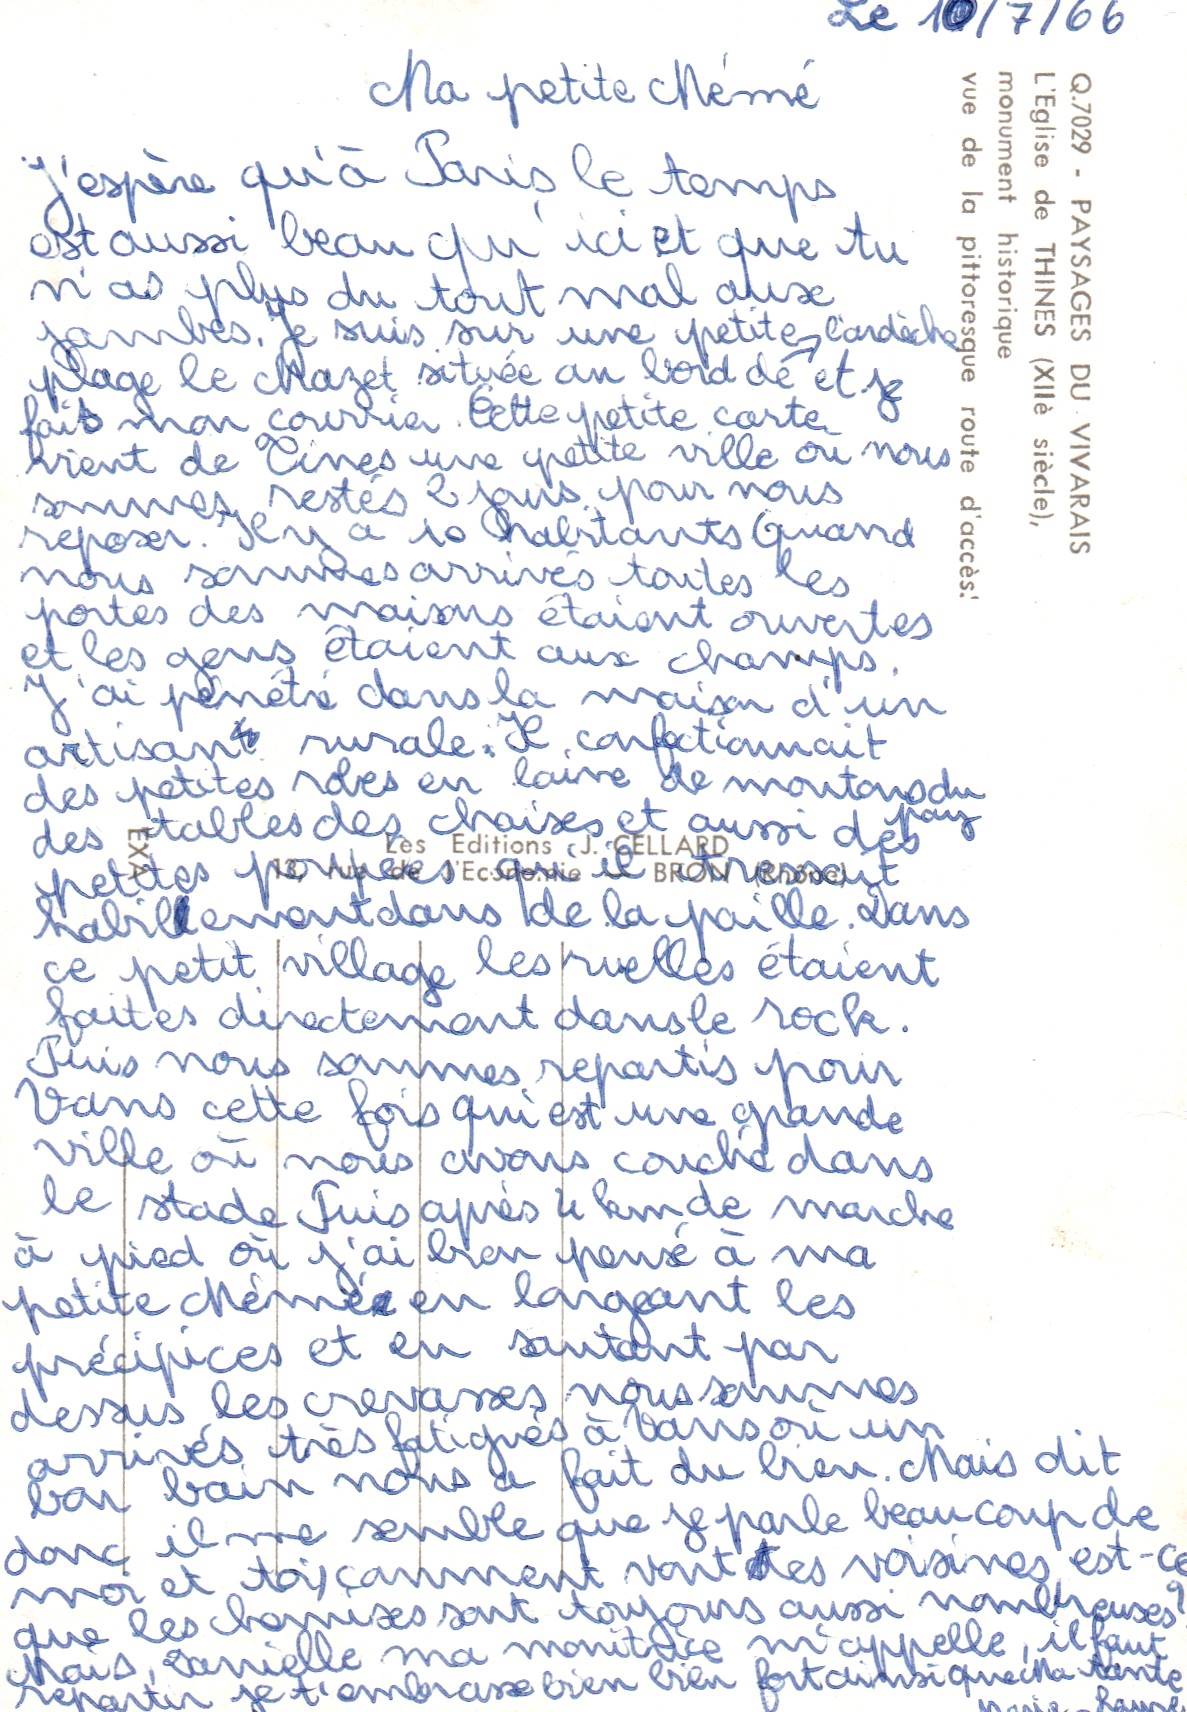 Le 10/7/66
Ma petite Mémé
J'espère qu'à Paris le temps
est aussi beau qu'ici et que tu
n'as plus du tout mal aux
jambes. Je suis sur une petite
plage le Mazet située au bord de l'ardèche et je
fais mon courrier. Cette petite carte
vient de Tines une petite ville où nous
sommes restés 2 jours pour nous
reposer. Il y a 10 habitants (quand
nous sommes arrivés toutes les
portes des maisons étaient ouvertes
et les gens étaient aux champs.
J'ai pénétré dans la maison d'un
artisan rurale. Il confectionnait
des petites robes en laine de moutons du pays
des tables des chaises et aussi des
petites poupées qu'il tressait
habillement dans de la paille. Dans
ce petit village les ruelles étaient
faites directement dans le rock.
Puis nous sommes repartis pour
Vans cette fois qui est une grande
ville où nous avons couché dans
le stade Puis après 4 km de marche
à pied où j'ai bien pensé à ma
petite Mémé en longeant les
précipices et en sautant par
dessus les crevasses nous sommes
arrivés très fatigués à Vans où un
bon bain nous a fait du bien. Mais dit
donc il me semble que je parle beaucoup de
moi et toi, comment vont tes voisines est-ce
que les chemises sont toujours aussi nombreuses?
Mais, Danielle ma monitrice m'appelle, il faut
repartir je t'embrasse bien bien fort ainsi que Ma tante
Q.7029 - PAYSAGES DU VIVARAIS
L'Eglise de THINES (XIIè siècle),
monument historique
vue de la pittoresque route d'accès.
EXA
Les Editions J. CELLARD
13, rue de l'Economie - BRON (Rhône)